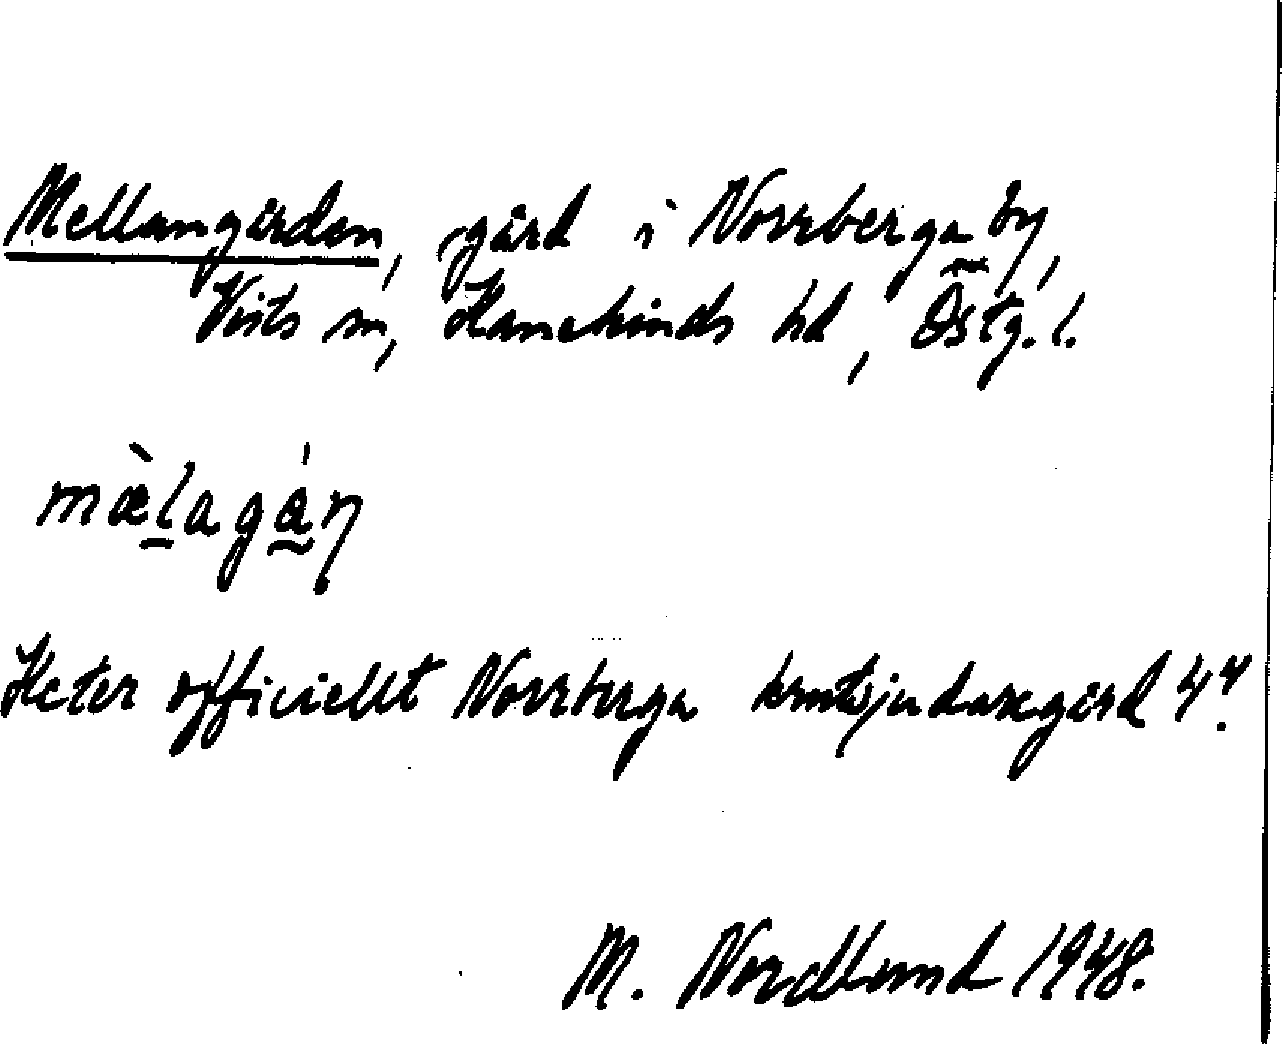 Mellangården, gård i Norrberga by,
Vists sn, Hanekinds hd, Östg. l.
mæ̀l̠agǻn
Heter officiellt Norrberga 4⁴.
M. Nordlund 1948.